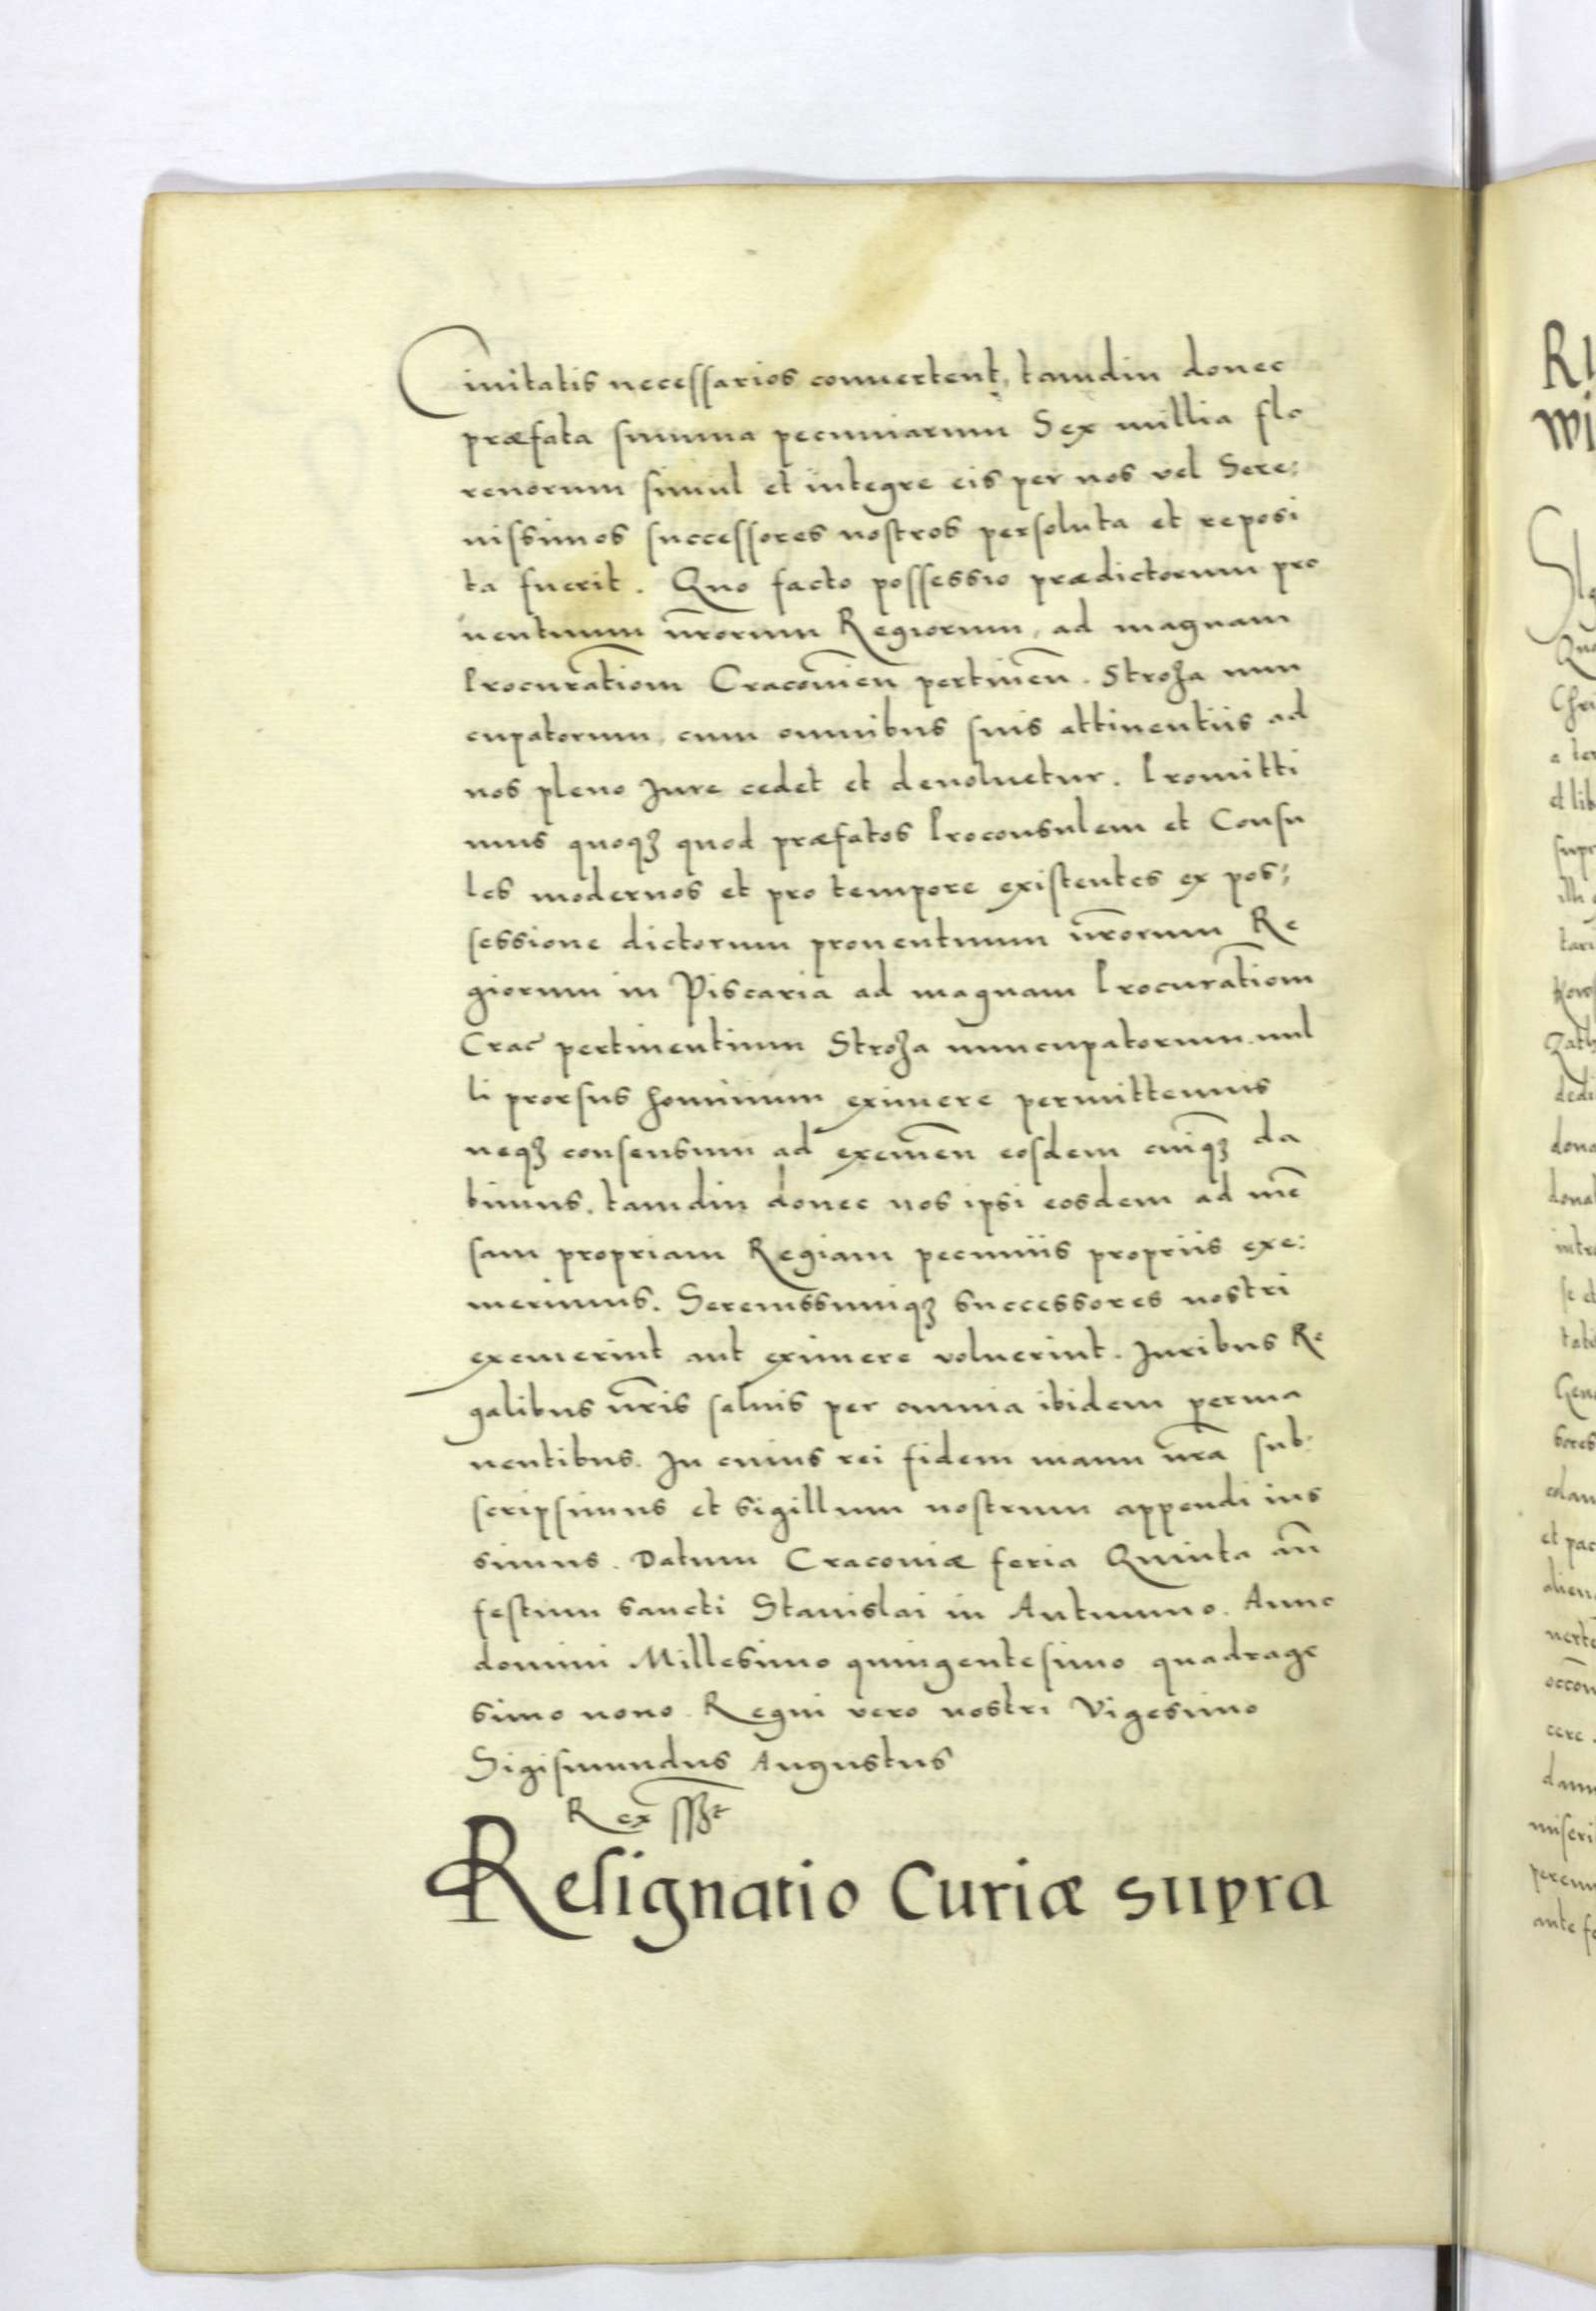 Ciuitatis necessarios conuertent, tamdiu donec
præfata summa pecuniarum Sex millia flo
renorum simul et integre eis per nos vel Sere:
nissimos successores nostros persoluta et reposi
ta fuerit. Quo facto possessio prædictorum pro
uentuum nr̄orum Regiorum, ad magnam
Procurat̄iom Cracouien̄ pertinen̄. Stroża nun
cupatorum, cum omnibus suis attinentiis ad
nos pleno Jure cedet et deuoluetur. Promitti
mus quoqꝫ quod præfatos Proconsulem et Consu
les modernos et pro tempore existentes ex pos:
sessione dictorum prouentuum nr̄orum Re
giorum in Piscaria ad magnam Procurat̄iom
Crac̄ pertinentium Stroża nuncupatorum nul
li prorsus hominum eximere permittemus
neqꝫ consensum ad exemen̄ eosdem cuiqꝫ da
bimus, tamdiu donec nos ipsi eosdem ad mē
sam propriam Regiam pecuniis propriis exe:
merimus. Serenissimiqꝫ successores nostri
exemerint aut eximere voluerint. Juribus Re
galibus nr̄is saluis per omnia ibidem perma
nentibus. In cuius rei fidem manu nr̄a sub:
scripsimus et sigillum nostrum appendi ius
simus. Datum Cracouiæ feria Quinta an̄
festum sancti Stanislai in Autumno. Anno
domini Millesimo quingentesimo quadrage
simo nono. Regni vero nostri Vigesimo
Sigismundus Augustus
Rex ssꝫt
Resignatio Curiæ supra